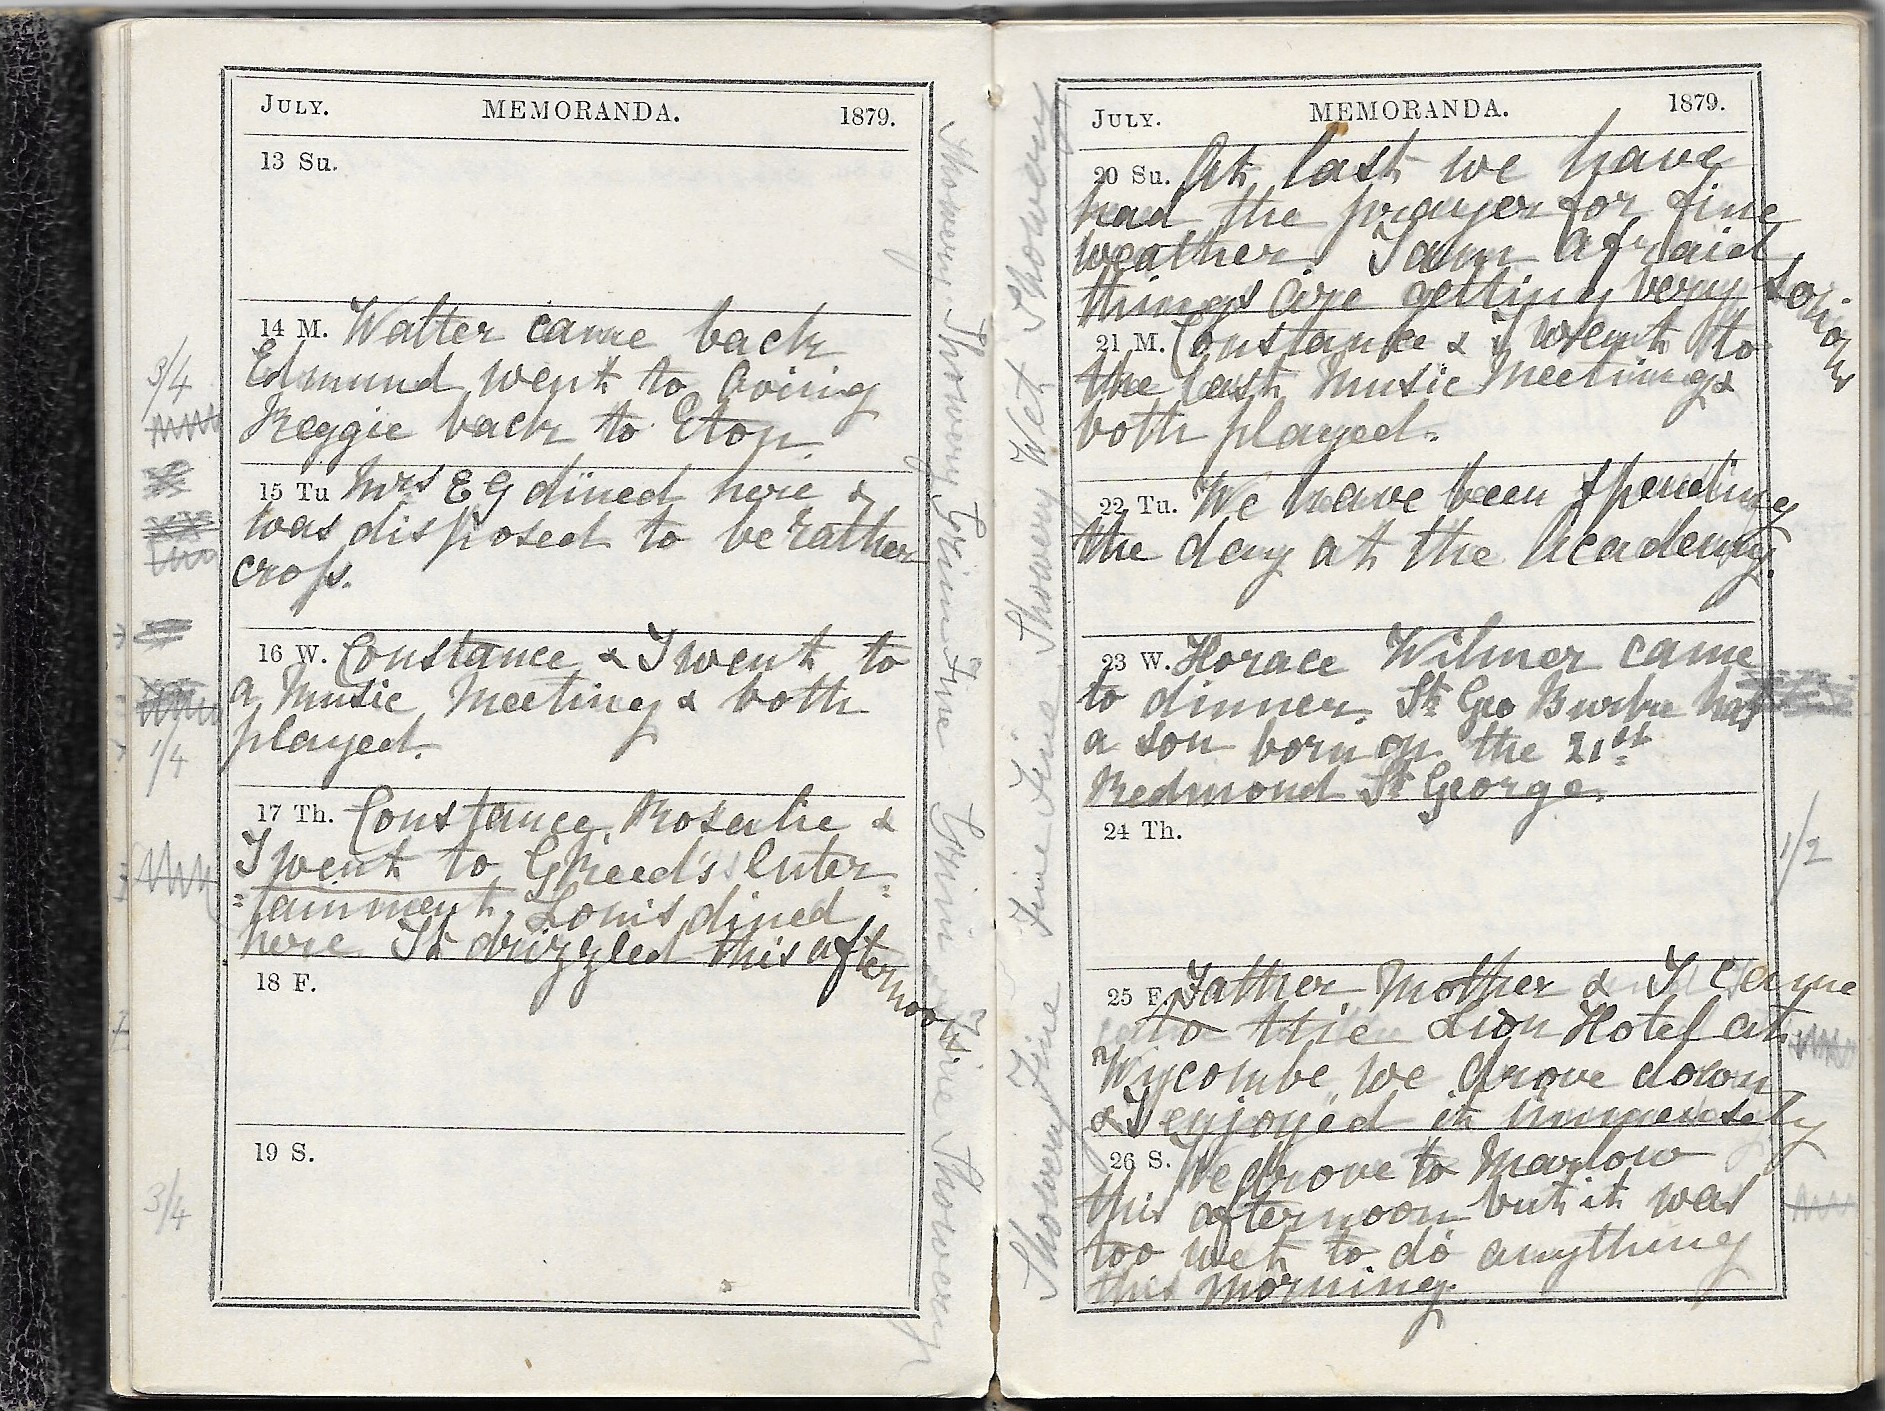 JULY. MEMORANDA. 1879.
13 Su.
14 M. Walter came back
Edmund went to
Reggie back to Eton.
15 Tu Mrs E G dined here &
was disposed to be rather
cross.
16 W. Constance & I went to
a Music Meeting & both
played.
17 Th. Constance, Rosalie &
I went to G Reed's Enter-
=tainment. Louis dined
here It drizzled this afternoon
18 F.
19 S.
3/4
1/4
3/4
Showery Showery Grim Fine Grim Fine Showery
JULY. MEMORANDA. 1879.
20 Su. At last we have
had the prayer for fine
weather. I am afraid
things are getting very serious
21 M. Constance & I went to
the last Music Meeting &
both played.
22 Tu. We have been spending
the day at the Academy.
23 W. Horace Wilmer came
to dinner. St Geo Burke has
a son born on the 21st
Redmond St George.
24 Th.
25 F. Father, Mother & I came
to the Lion Hotel at
Wycombe, we drove down
& I enjoyed it immensely
26 S. We drove to Marlow
this afternoon but it was
too wet to do anything
this morning.
1/2
Showery Fine Fine Fine Showery Wet Showery